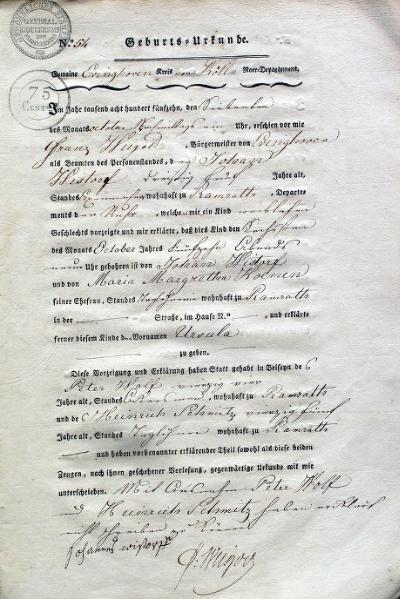 N.º 54 Geburts-Urkunde.
Gemeine Evinghoven Kreis von Kölln Roer-Departement,
75
CENT
Im Jahr tausend acht hundert fünfzehn, den Siebenten
des Monats october Nachmittags um Uhr, erschien vor mir
Franz Bürgermeister von Evinghoven
als Beamten des Personenstandes, Johann
Wistorf Dreißig fünf Jahre alt,
Standes wohnhaft zu Ramrath, Departe
ments der Ruhr, welcher mir ein Kind weiblichen
Geschlechts vorzeigte und mir erklärte, daß dies Kind den Sechsten
des Monats October Jahres fünfzehn Abends
neun Uhr gebohren ist von Johan Wistorf
und von Maria Margretha Koenen
seiner Ehefrau, Standes Taglöhnerin wohnhaft zu Ramrath
in der Straße, im Hause N.º und erklärte
ferner diesem Kinde den Vornamen Ursula
zu geben.
Diese Vorzeigung und Erklärung haben Statt gehabt in Beiseyn des
Peter Wolf vierzig vier
Jahre alt, Standes Ackersmann, wohnhaft zu Ramrath
und des Heinrich Schmitz vierzig fünf
Jahre alt, Standes Taglöhner wohnhaft zu Ramrath
und haben vorbenannter erklärender Theil sowohl als diese beiden
Zeugen, nach ihnen geschehener Verlesung, gegenwärtige Urkunde mit mir
unterschrieben. Mit Ausnahm Peter Wolf
und Heinrich Schmitz haben erklärt
nicht schreiben zu können
Johannes wistorf